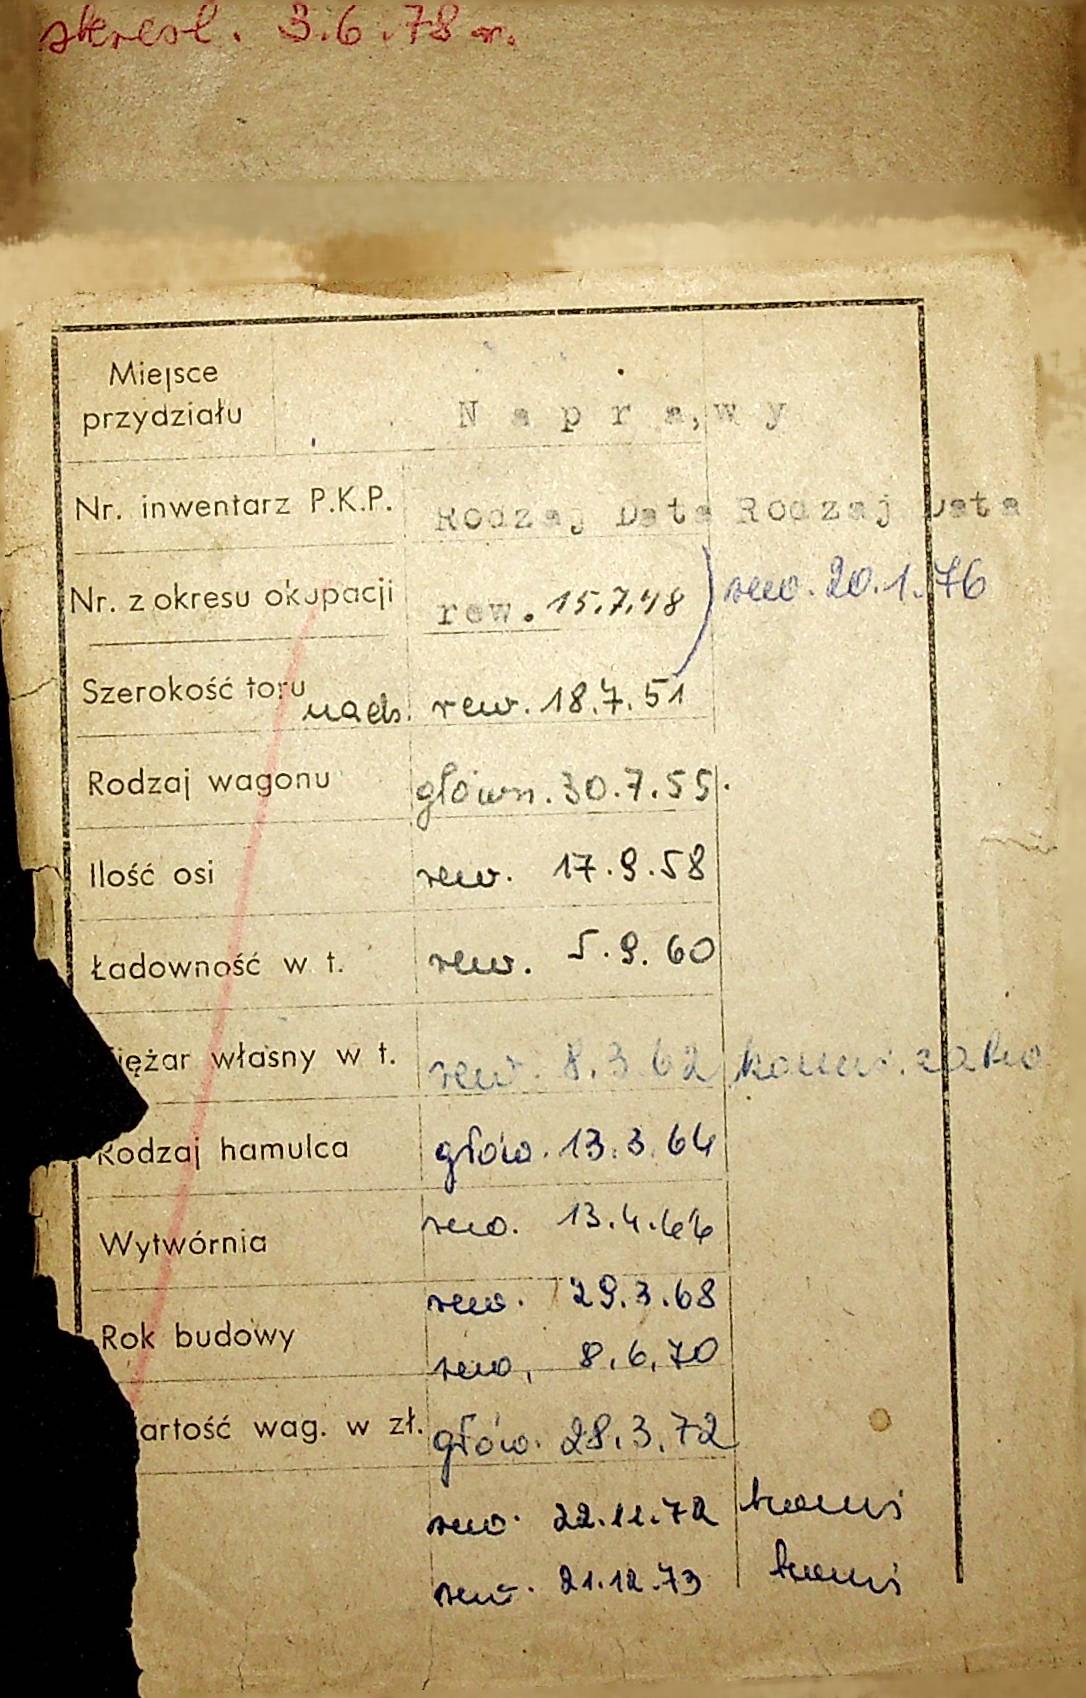 skreśl. 3.6.78 r.
Miejsce
przydziału
N a p r a w y
Nr. inwentarz P.K.P.
Rodzaj Data Rodzaj Data
Nr. z okresu okupacji rew. 15.7.48 rew. 20.1.76
Szerokość toru
nads. rew. 18.7.51
Rodzaj wagonu główn. 30.7.55.
Ilość osi rew. 17.9.58
Ładowność w t. rew. 5.9.60
iężar własny w t. rew. 8.3.62
Rodzaj hamulca głów. 13.3.64
Wytwórnia rew. 13.4.66
rew. 29.3.68
Rok budowy
rew. 8.6.70
artość wag. w zł. głów. 28.3.72
rew. 22.11.72
rew. 21.12.73